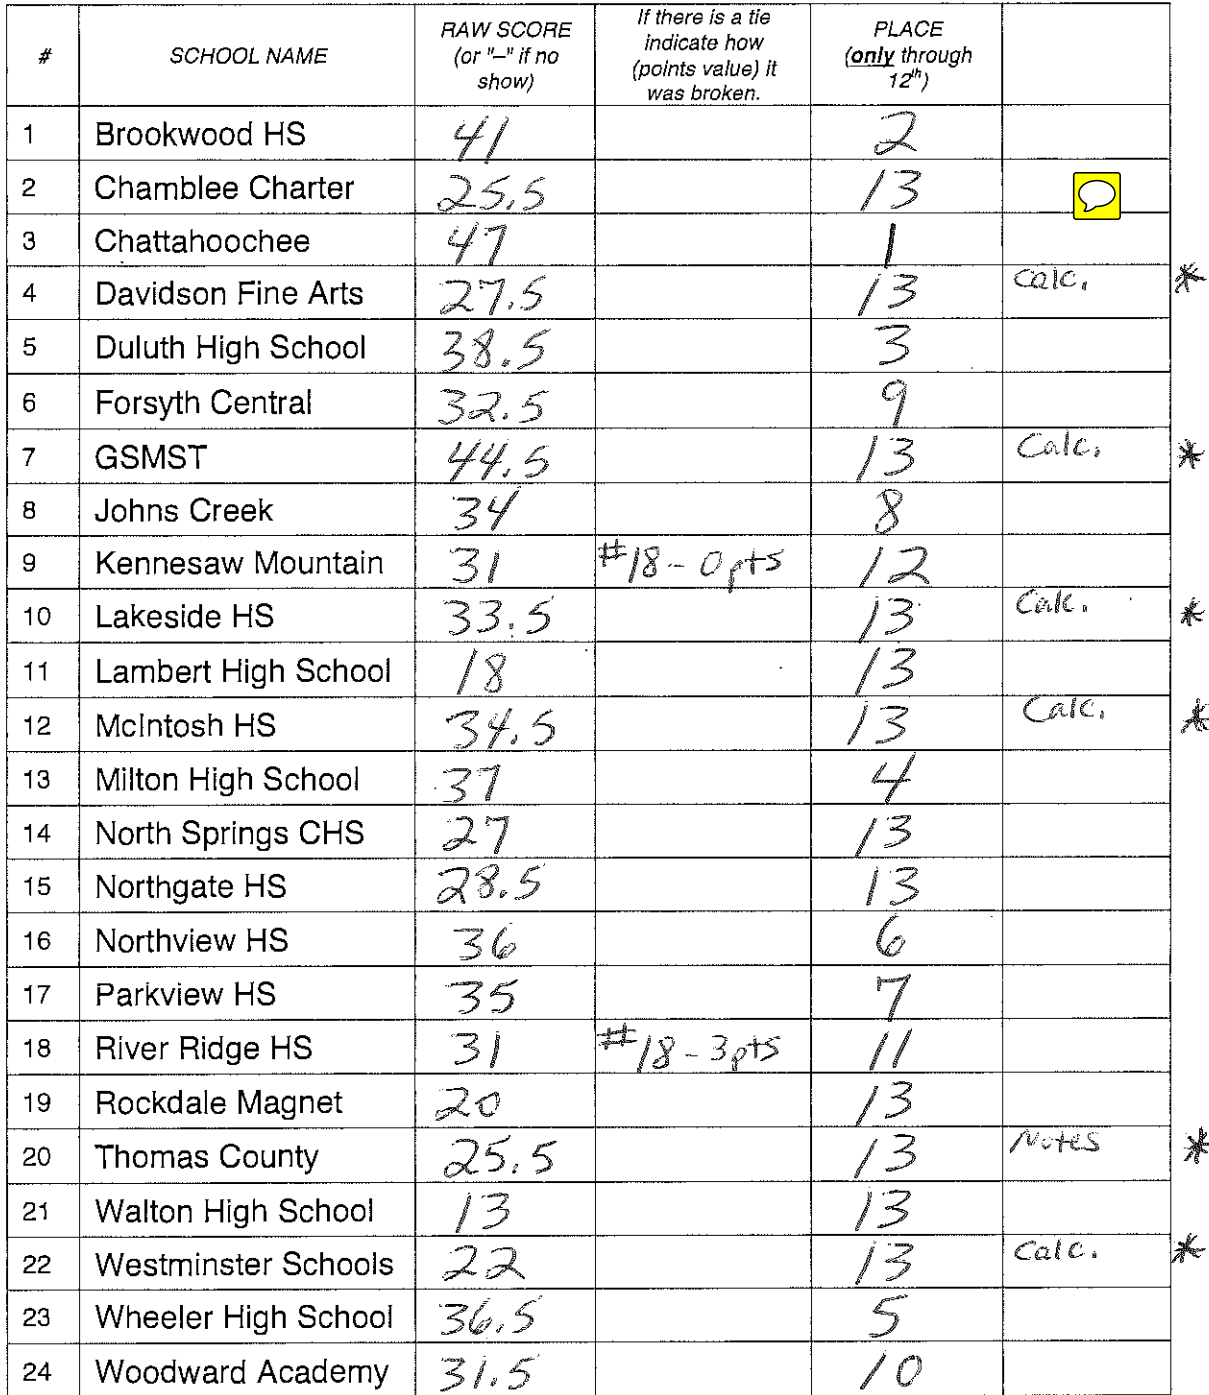 # SCHOOL NAME RAW SCORE (or "–" if no show) If there is a tie indicate how (points value) it was broken. PLACE (only through 12th)
1 Brookwood HS 41 2
2 Chamblee Charter 25.5 13
3 Chattahoochee 47 1
4 Davidson Fine Arts 27.5 13 Calc. *
5 Duluth High School 38.5 3
6 Forsyth Central 32.5 9
7 GSMST 44.5 13 Calc. *
8 Johns Creek 34 8
9 Kennesaw Mountain 31 #18 - 0 pts 12
10 Lakeside HS 33.5 13 Calc. *
11 Lambert High School 18 13
12 McIntosh HS 34.5 13 Calc. *
13 Milton High School 37 4
14 North Springs CHS 27 13
15 Northgate HS 28.5 13
16 Northview HS 36 6
17 Parkview HS 35 7
18 River Ridge HS 31 #18 - 3 pts 11
19 Rockdale Magnet 20 13
20 Thomas County 25.5 13 Notes *
21 Walton High School 13 13
22 Westminster Schools 22 13 Calc. *
23 Wheeler High School 36.5 5
24 Woodward Academy 31.5 10